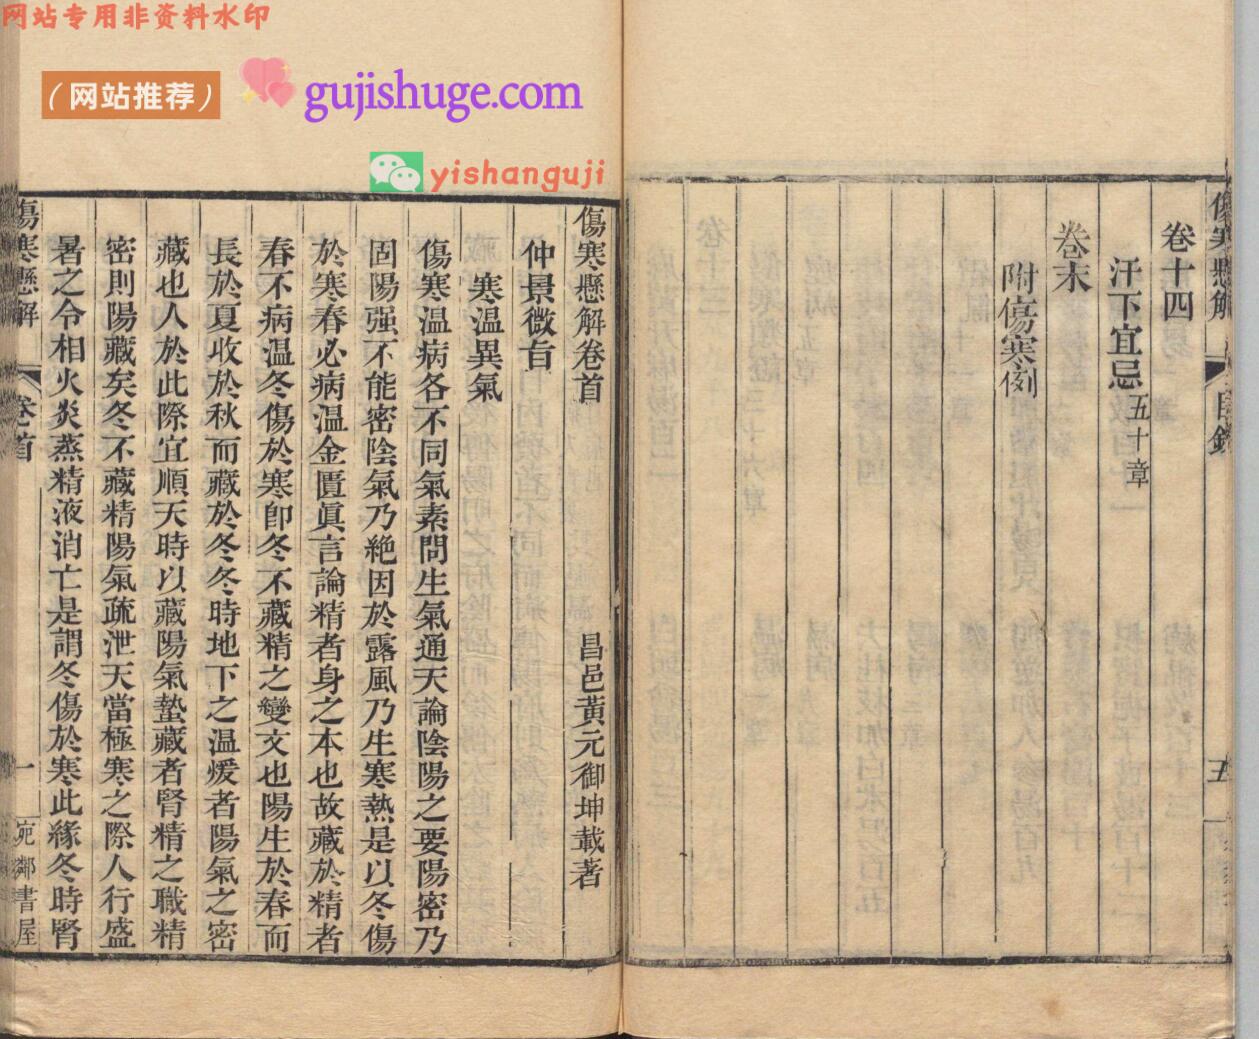 网站专用非资料水印
（网站推荐）
gujishuge.com
yishanguji
卷十四
汗下宜忌 五十章
卷末
附傷寒例
傷寒懸解
目錄
五
傷寒懸解卷首
昌邑黃元御坤載著
仲景微旨
寒溫異氣
傷寒溫病各不同氣素問生氣通天論陰陽之要陽密乃
固陽强不能密陰氣乃絶因於露風乃生寒熱是以冬傷
於寒春必病温金匱眞言論精者身之本也故藏於精者
春不病溫冬傷於寒卽冬不藏精之變文也陽生於春而
長於夏收於秋而藏於冬冬時地下之温煖者陽氣之密
藏也人於此際宜順天時以藏陽氣蟄藏者腎精之職精
密則陽藏矣冬不藏精陽氣疏泄天當極寒之際人行盛
暑之令相火炎蒸精液消亡是謂冬傷於寒此緣冬時腎
傷寒懸解
卷首
一
宛鄰書屋